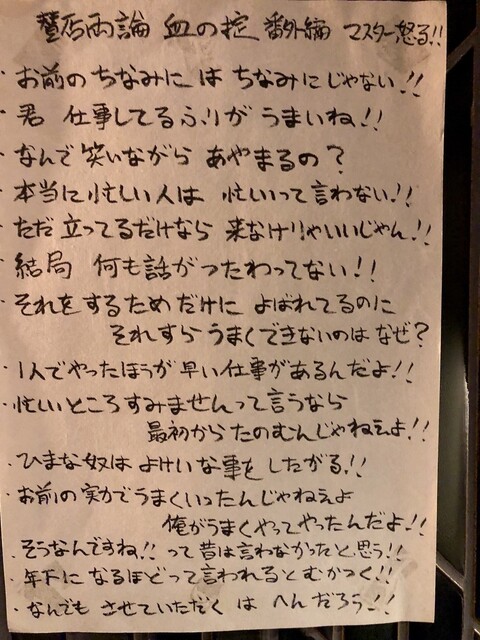 賛否両論 血の掟 番外編 マスター怒る!!
・お前のちなみには ちなみにじゃない!!
・君 仕事してるふりが うまいね!!
・なんで 笑いながら あやまるの?
・本当に忙しい人は 忙しいって言わない!!
・ただ 立ってるだけなら 来なけりゃいいじゃん!!
・結局 何も話がつたわってない!!
・それをするためだけに よばれてるのに
それすら うまくできないのは なぜ?
・1人でやったほうが 早い仕事があるんだよ!!
・忙しいところ すみませんって言うなら
最初から たのむんじゃねえよ!!
・ひまな奴は よけいな事を したがる!!
・お前の実力でうまくいったんじゃねえよ
俺がうまくやってやったんだよ!!
・そうなんですね!! って 昔は言わなかったと思う!!
・年下に なるほどって言われると むかつく!!
・なんでも させていただく は へんだろう!!